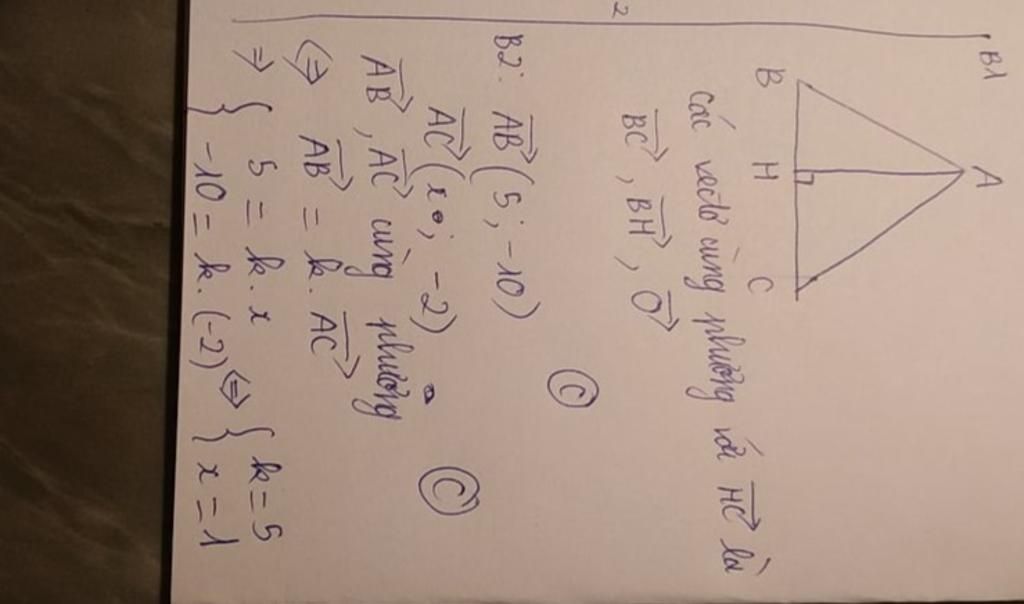 B1
A
B H C
các vectơ cùng phương với HC→ là
BC→, BH→, O→
C
B2: AB→(5; -10)
AC→(x; -2)
AB→, AC→ cùng phương
C
⇔ AB→ = k. AC→
⇒ { 5 = k. x
-10 = k. (-2) ⇔ { k = 5
x = 1
2